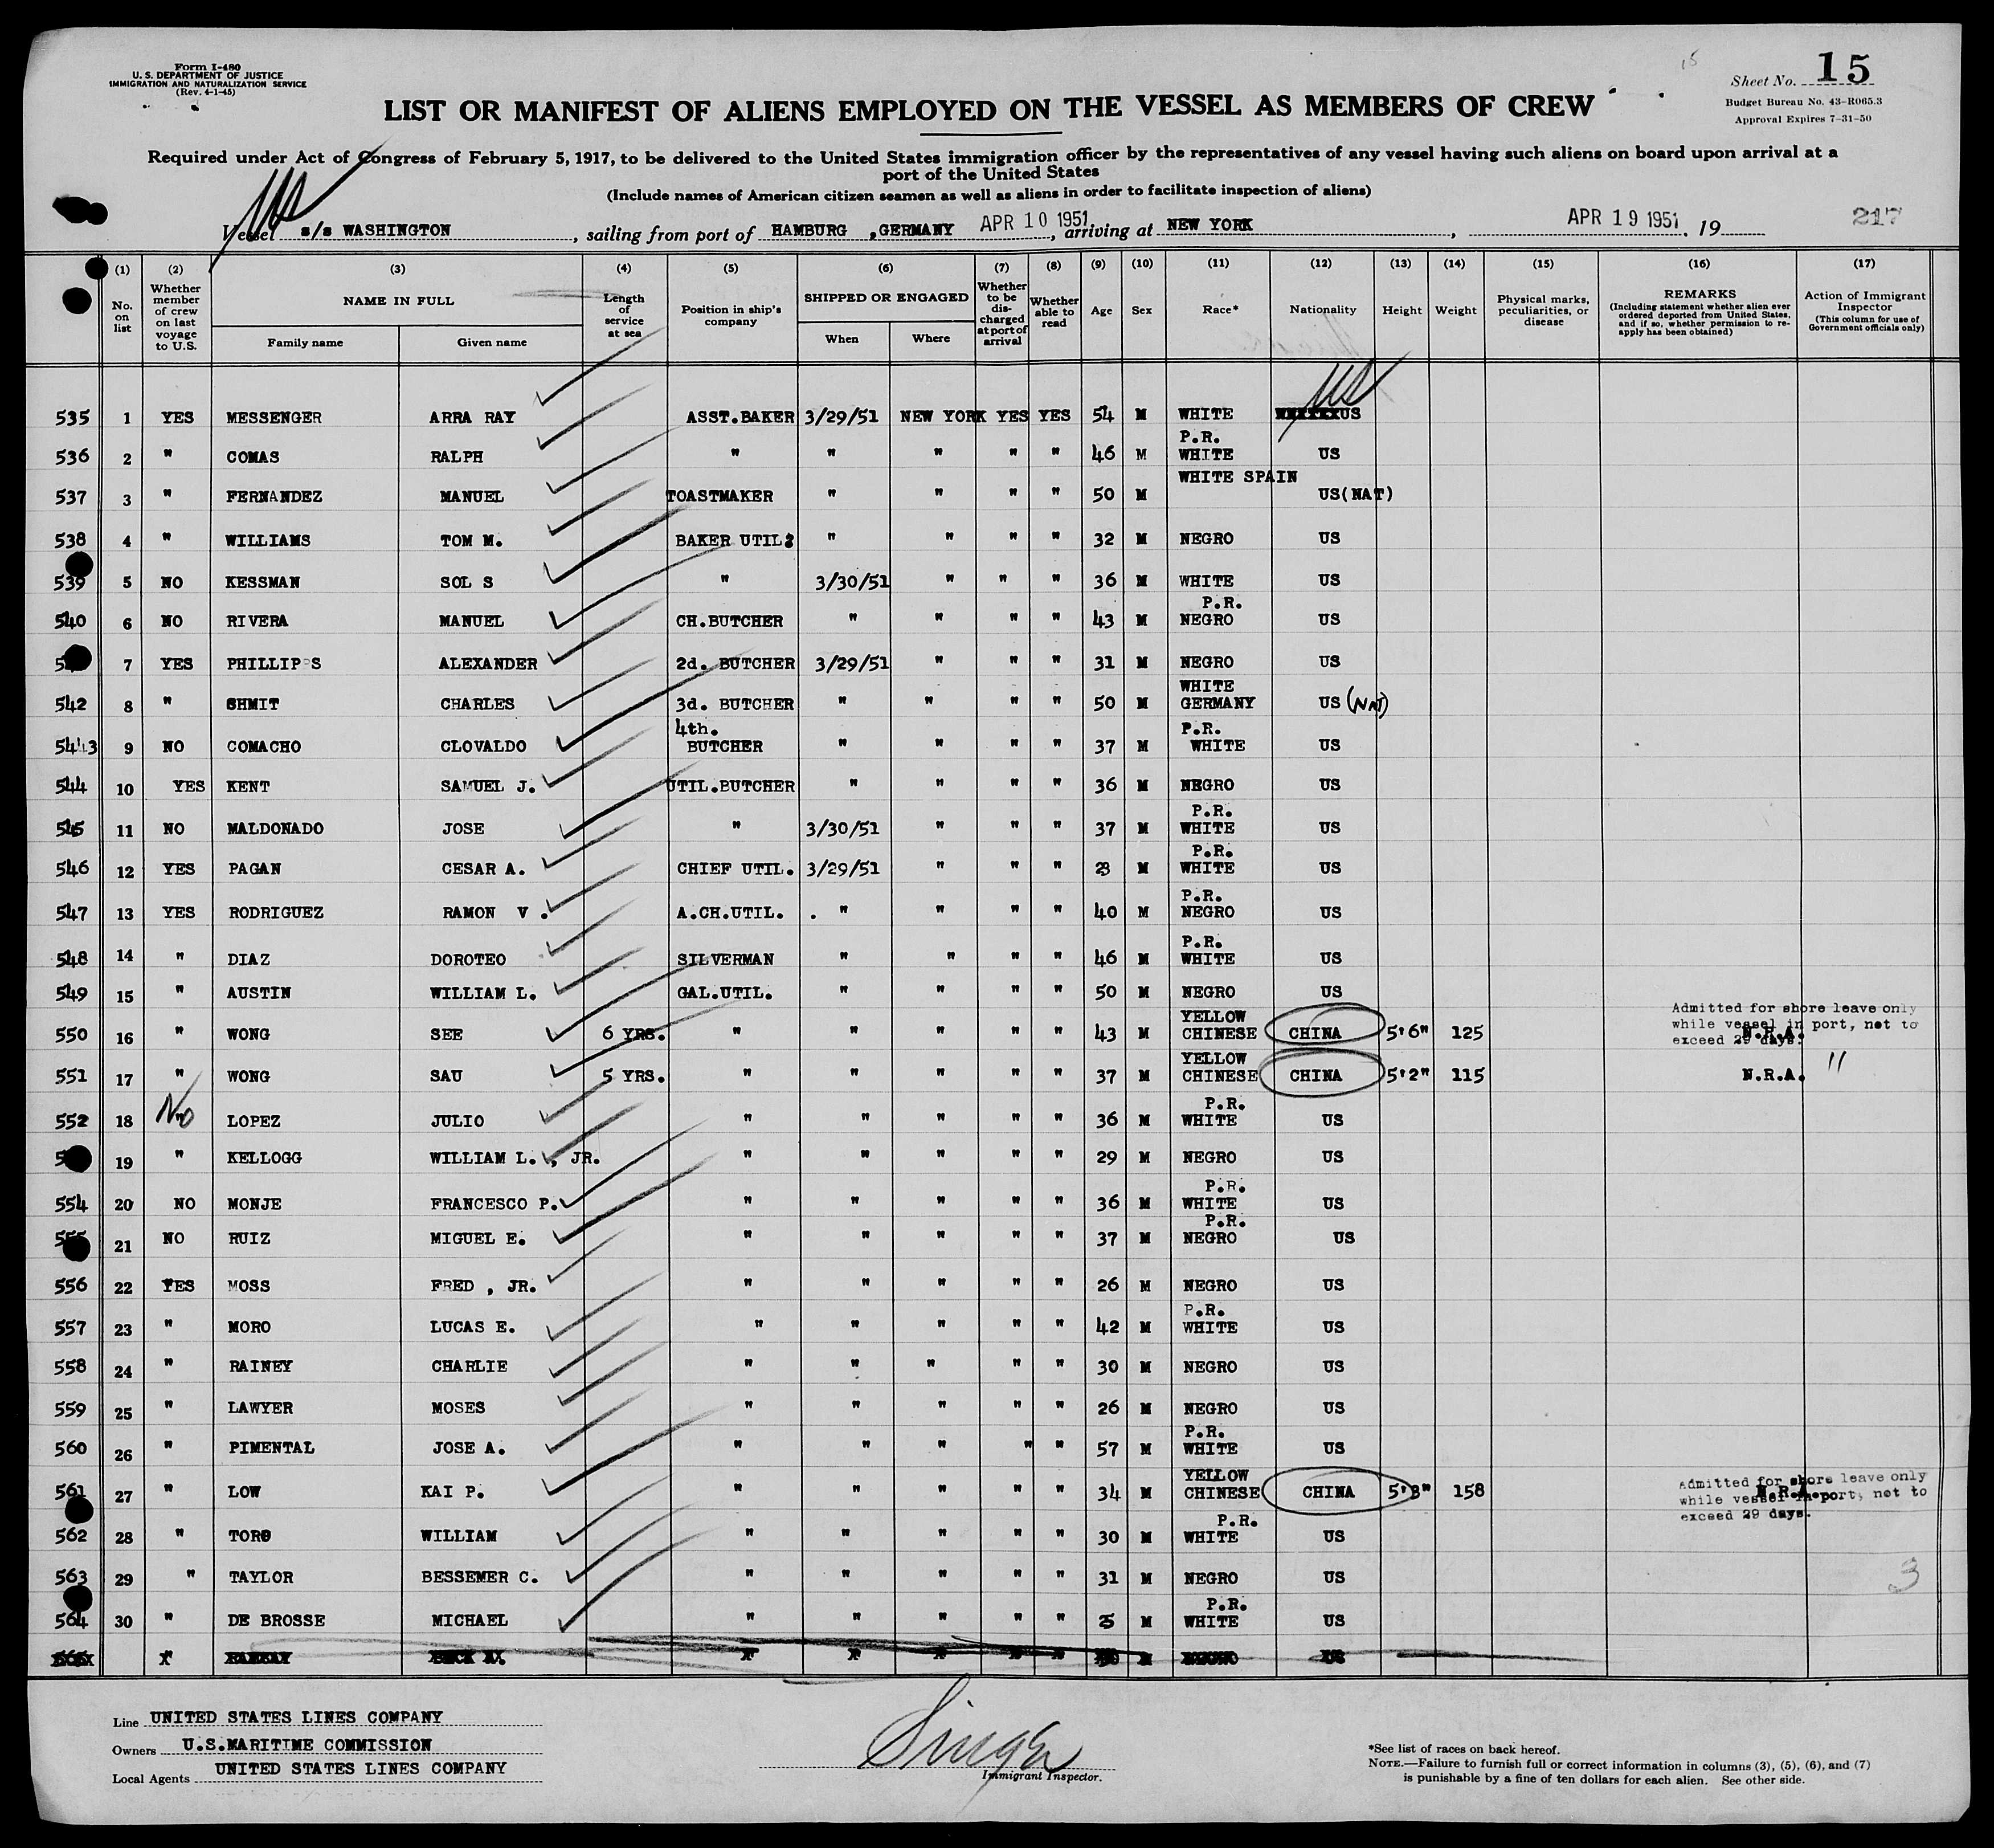 Form I-480
U. S. DEPARTMENT OF JUSTICE
IMMIGRATION AND NATURALIZATION SERVICE
(Rev. 4-1-45)
15
Sheet No. 15
Budget Bureau No. 43-R065.3
Approval Expires 7-31-50
LIST OR MANIFEST OF ALIENS EMPLOYED ON THE VESSEL AS MEMBERS OF CREW
Required under Act of Congress of February 5, 1917, to be delivered to the United States immigration officer by the representatives of any vessel having such aliens on board upon arrival at a
port of the United States
(Include names of American citizen seamen as well as aliens in order to facilitate inspection of aliens)
US
Vessel s/s WASHINGTON, sailing from port of HAMBURG ,GERMANY APR 10 1951, arriving at NEW YORK, APR 19 1951, 19 217
(1) (2) (3) (4) (5) (6) (7) (8) (9) (10) (11) (12) (13) (14) (15) (16) (17)
No. on list
Whether member of crew on last voyage to U.S.
NAME IN FULL
Family name
Given name
Length of service at sea
Position in ship's company
SHIPPED OR ENGAGED
When
Where
Whether to be discharged at port of arrival
Whether able to read
Age
Sex
Race*
Nationality
Height
Weight
Physical marks, peculiarities, or disease
REMARKS
(Including statement whether alien ever ordered deported from United States, and if so, whether permission to reapply has been obtained)
Action of Immigrant Inspector
(This column for use of Government officials only)
US
535 1 YES MESSENGER ARRA RAY ASST.BAKER 3/29/51 NEW YORK YES YES 54 M WHITE US
536 2 " COMAS RALPH " " " " " 46 M P.R. WHITE US
537 3 " FERNANDEZ MANUEL TOASTMAKER " " " " 50 M WHITE SPAIN US(NAT)
538 4 " WILLIAMS TOM M. BAKER UTIL " " " " 32 M NEGRO US
539 5 NO KESSMAN SOL S " 3/30/51 " " " 36 M WHITE US
540 6 NO RIVERA MANUEL CH.BUTCHER " " " " 43 M P.R. NEGRO US
7 YES PHILLIPS ALEXANDER 2d. BUTCHER 3/29/51 " " " 31 M NEGRO US
542 8 " SHMIT CHARLES 3d. BUTCHER " " " " 50 M WHITE GERMANY US (NAT)
543 9 NO COMACHO CLOVALDO 4th. BUTCHER " " " " 37 M P.R. WHITE US
544 10 YES KENT SAMUEL J. UTIL.BUTCHER " " " " 36 M NEGRO US
545 11 NO MALDONADO JOSE " 3/30/51 " " " 37 M P.R. WHITE US
546 12 YES PAGAN CESAR A. CHIEF UTIL. 3/29/51 " " " M P.R. WHITE US
547 13 YES RODRIGUEZ RAMON V . A.CH.UTIL. . " " " " 40 M P.R. NEGRO US
548 14 " DIAZ DOROTEO SILVERMAN " " " " 46 M P.R. WHITE US
549 15 " AUSTIN WILLIAM L. GAL.UTIL. " " " " 50 M NEGRO US
550 16 " WONG SEE 6 YRS. " " " " " 43 M YELLOW CHINESE CHINA 5'6" 125 N.R.A. Admitted for shore leave only while vessel in port, not to exceed 29 days.
551 17 " WONG SAU 5 YRS. " " " " " 37 M YELLOW CHINESE CHINA 5'2" 115 N.R.A. "
552 18 No LOPEZ JULIO " " " " " 36 M P.R. WHITE US
19 " KELLOGG WILLIAM L. , JR. " " " " " 29 M NEGRO US
554 20 NO MONJE FRANCESCO P. " " " " " 36 M P.R. WHITE US
555 21 NO RUIZ MIGUEL E. " " " " " 37 M P.R. NEGRO US
556 22 YES MOSS FRED , JR. " " " " " 26 M NEGRO US
557 23 " MORO LUCAS E. " " " " " 42 M P.R. WHITE US
558 24 " RAINEY CHARLIE " " " " " 30 M NEGRO US
559 25 " LAWYER MOSES " " " " " 26 M NEGRO US
560 26 " PIMENTAL JOSE A. " " " " " 57 M P.R. WHITE US
561 27 " LOW KAI P. " " " " " 34 M YELLOW CHINESE CHINA 158 N.R.A. Admitted for shore leave only while vessel in port, not to exceed 29 days.
562 28 " TORO WILLIAM " " " " " 30 M P.R. WHITE US
563 29 " TAYLOR BESSEMER C. " " " " " 31 M NEGRO US 3
564 30 " DE BROSSE MICHAEL " " " " " M P.R. WHITE US
Line UNITED STATES LINES COMPANY
Owners U.S.MARITIME COMMISSION
Local Agents UNITED STATES LINES COMPANY
Immigrant Inspector.
*See list of races on back hereof.
NOTE.—Failure to furnish full or correct information in columns (3), (5), (6), and (7)
is punishable by a fine of ten dollars for each alien. See other side.